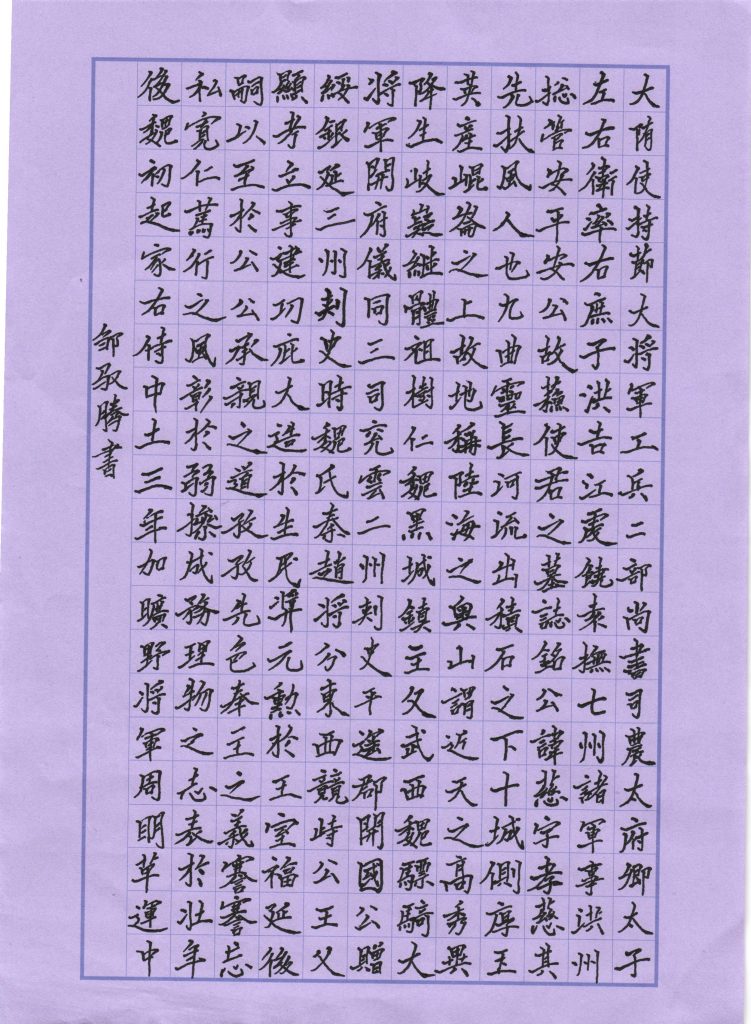 大隋使持節大将軍工兵二部尚書司農太府卿太子
左右衛率右庶子洪吉江虔饒袁撫七州諸軍事洪州
捴管安平安公故蘇使君之墓誌銘公諱慈字孝慈其
先扶風人也九曲靈長河流出積石之下十城側厚玉
英產崐崙之上故地稱陸海之奧山謂近天之高秀異
降生岐嶷繼體祖樹仁魏黑城鎮主父武西魏驃騎大
将軍開府儀同三司兖雲二州刾史平遥郡開國公贈
綏銀延三州刾史時魏氏秦趙将分東西競峙公王父
顯考立事建功庇大造於生民奬元勲於王室福延後
嗣以至於公公承親之道孜孜先色奉主之義謇謇忘
私寬仁篤行之風彰於弱操成務理物之志表於壯年
後魏初起家右侍中士三年加曠野将軍周明革運中
邹驭腾書